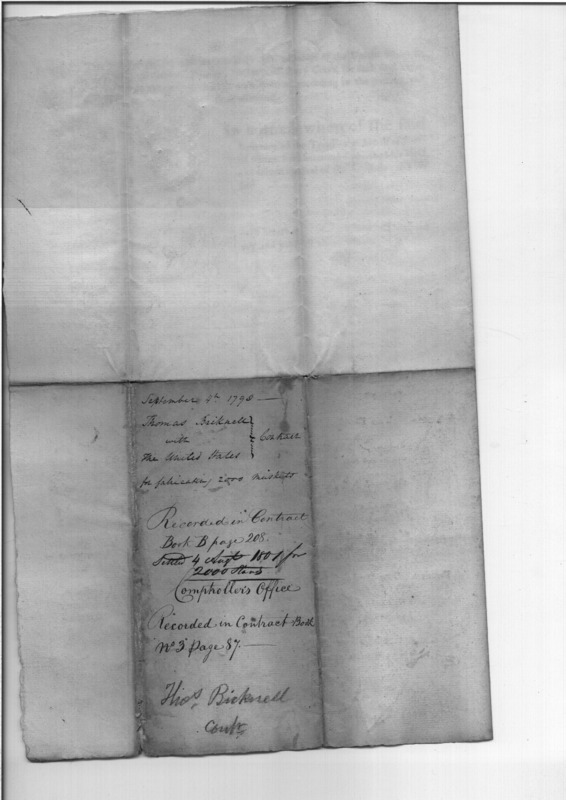 September 1798
Thomas Bicknell
with
The United States
Contract
for fabricating 2000 muskets
Recorded in Contract
Book B page 208.
Settled 4 Augt 1801 for
2000 Stand
Comptroller's Office
Recorded in Contract Book
No 3 page 87.
Thos Bicknell
Contr